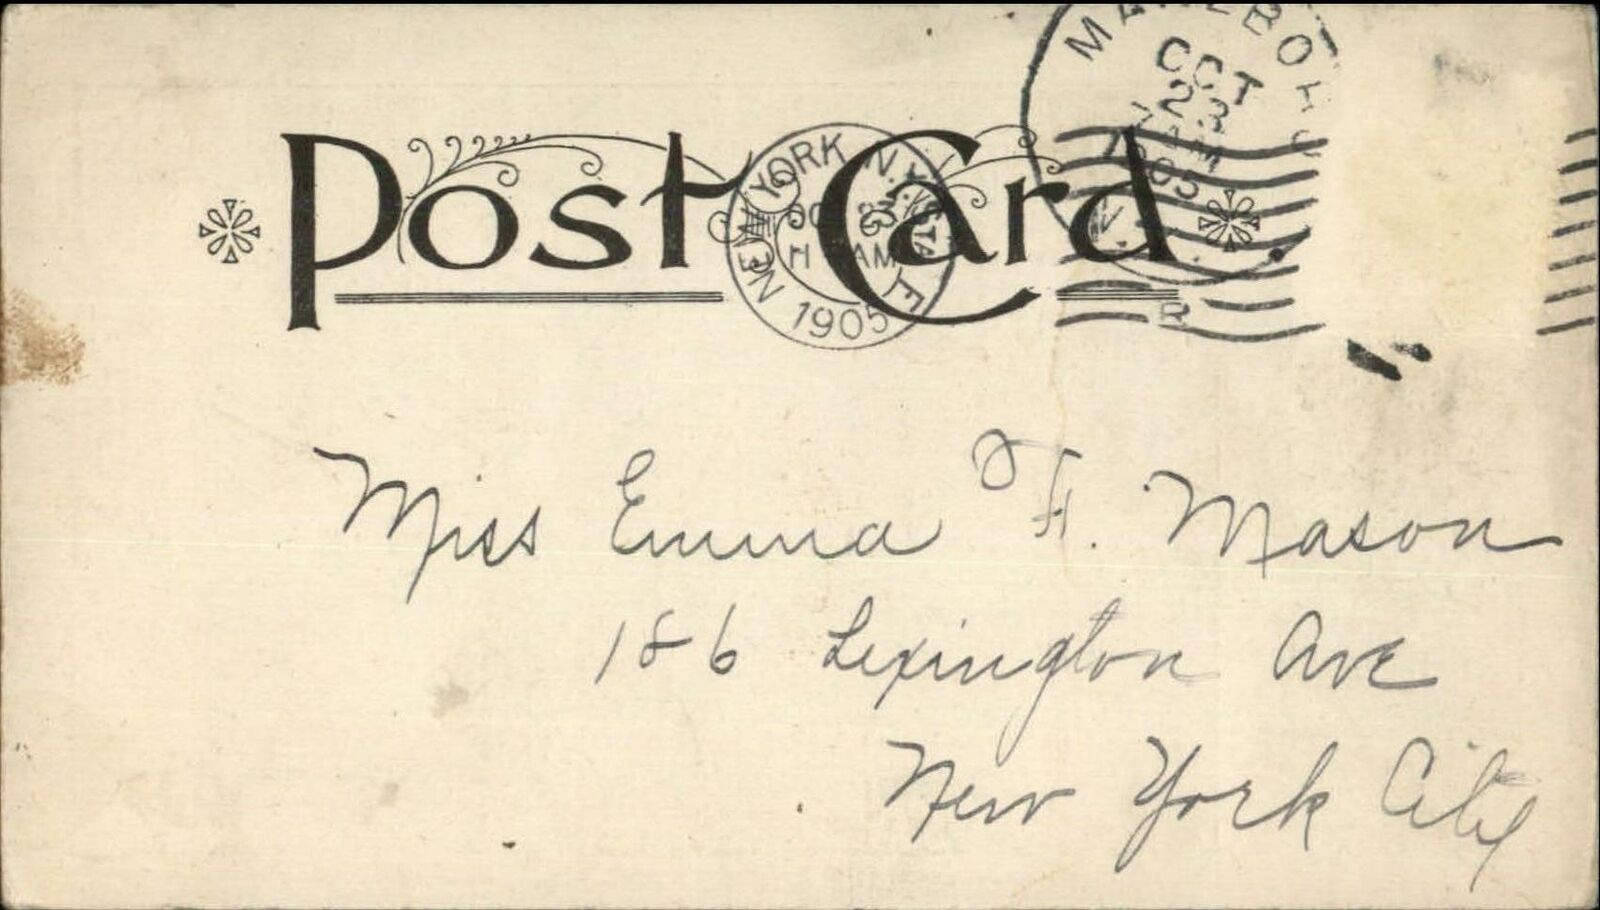 OCT
23
7 AM
1905
N.Y.
Post Card
NEW YORK, N.Y. STA. E
OC 23
11 AM
1905
R
Miss Emma F. Mason
186 Lexington Ave
New York City